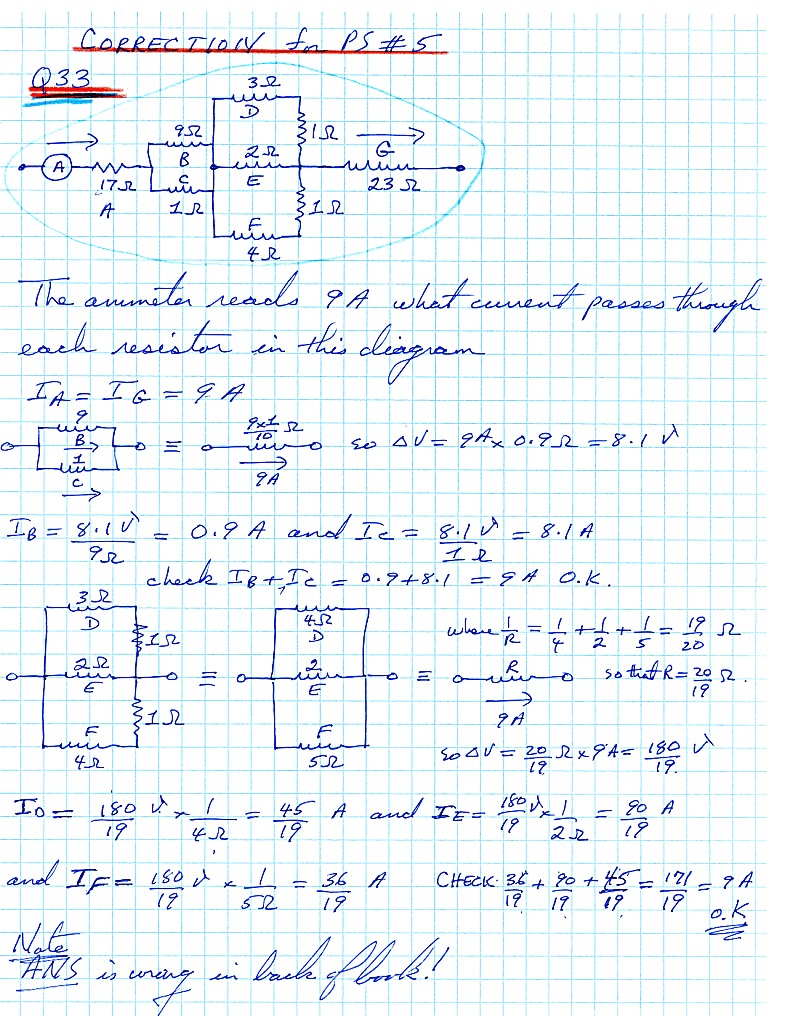 CORRECTION for PS # 5
Q33
3Ω
D
1Ω
9Ω
B
2Ω
E
G
A
17Ω
A
C
1Ω
23 Ω
1Ω
F
4Ω
The ammeter reads 9A what current passes through
each resistor in this diagram
I_A = I_G = 9 A
9
B
1
C
≡ 9x1/10 Ω
9A
so ΔV = 9A x 0.9Ω = 8.1 V
I_B = 8.1V/9Ω = 0.9 A and I_C = 8.1V/1Ω = 8.1A
check I_B + I_C = 0.9+8.1 = 9A O.K.
3Ω
D
1Ω
2Ω
E
1Ω
F
4Ω
≡
4Ω
D
2
E
F
5Ω
≡
R
9A
where 1/R = 1/4 + 1/2 + 1/5 = 19/20 Ω
so that R = 20/19 Ω.
so ΔV = 20/19 Ω x 9A = 180/19 V
I_D = 180/19 V x 1/4Ω = 45/19 A and I_E = 180/19 V x 1/2Ω = 90/19 A
and I_F = 180/19 V x 1/5Ω = 36/19 A CHECK 36/19 + 90/19 + 45/19 = 171/19 = 9A
O.K
Note
ANS is wrong in back of book!